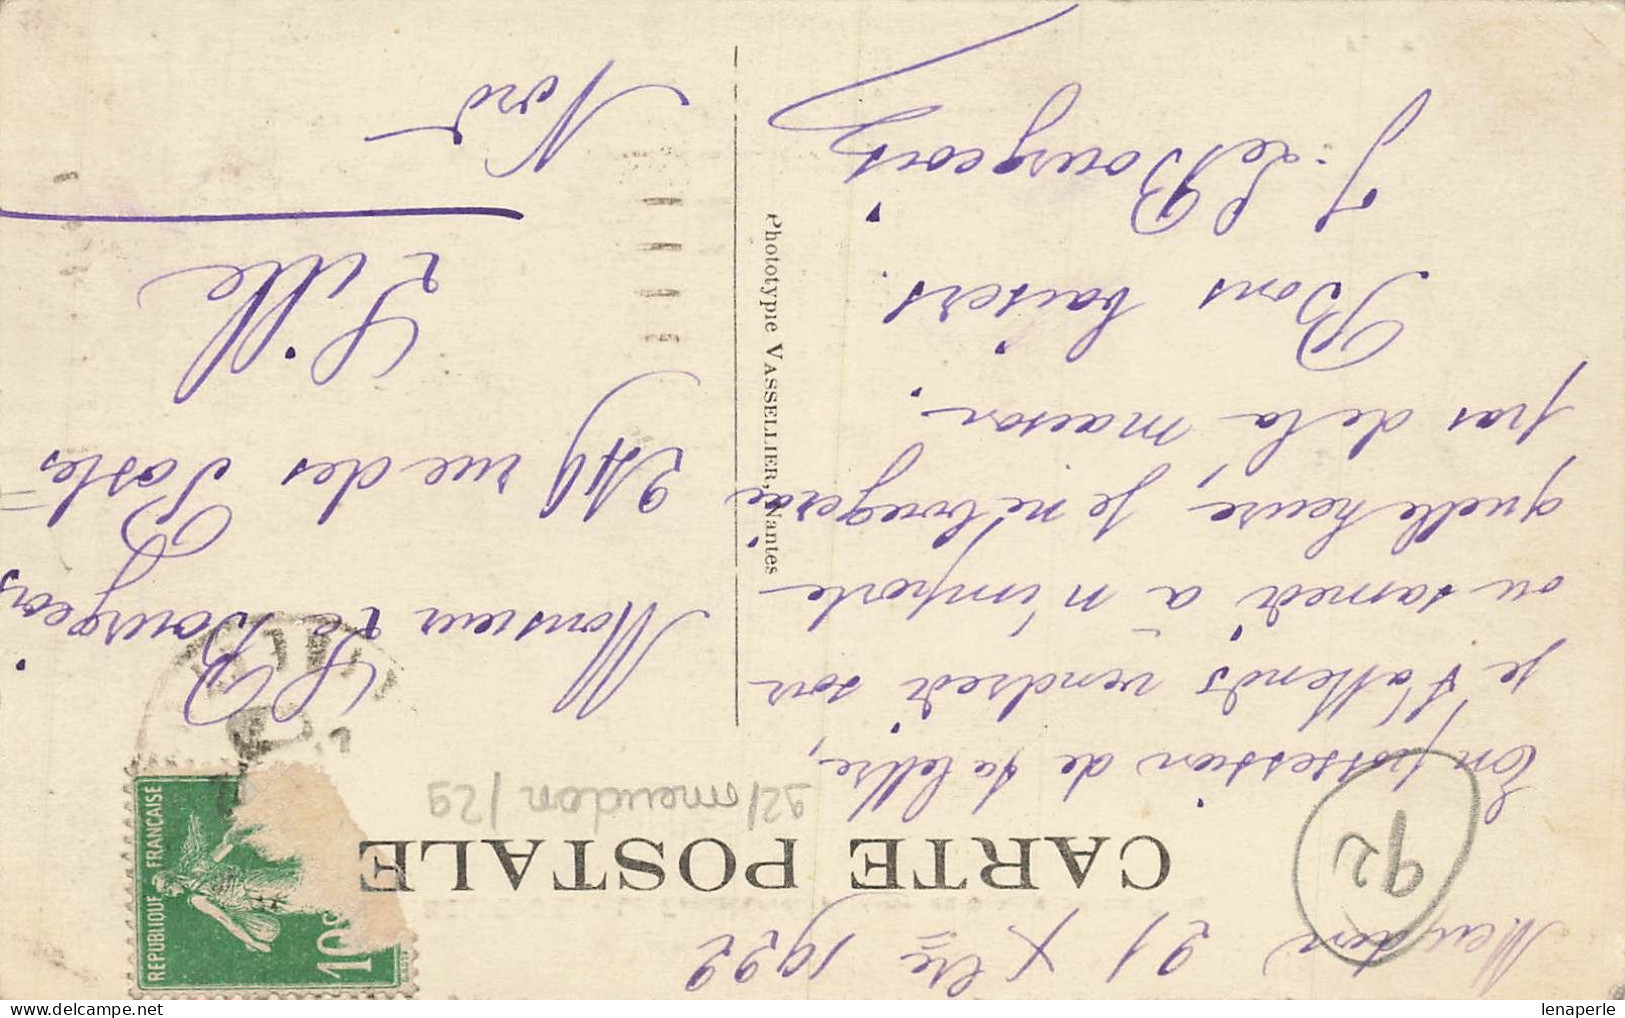 Meudon 21 Xbre 1922
CARTE POSTALE
92/meudon/29
92
En possession de ta lettre,
je t'attends vendredi soir
ou samedi à n'importe
quelle heure, je ne bougerai
pas de la maison.
Bons baisers.
J. Le Bourgeois
Phototypie VASSELLIER, Nantes
Monsieur Le Bourgeois
rue des Postes
Lille
Nord
REPUBLIQUE FRANÇAISE
10c
lenaperle